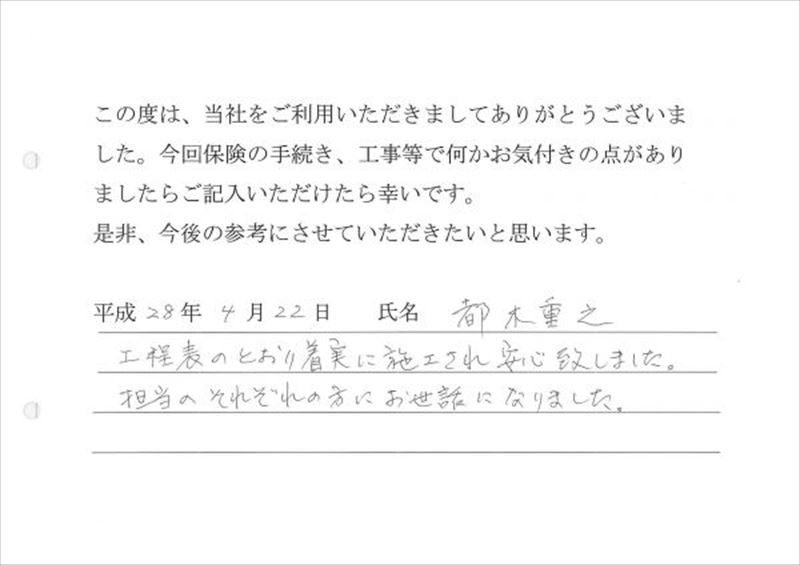 この度は、当社をご利用いただきましてありがとうございま
した。今回保険の手続き、工事等で何かお気付きの点があり
ましたらご記入いただけたら幸いです。
是非、今後の参考にさせていただきたいと思います。
平成 28年 4月22日 氏名 都木重之
工程表のとおり着実に施工され安心致しました。
担当のそれぞれの方にお世話になりました。